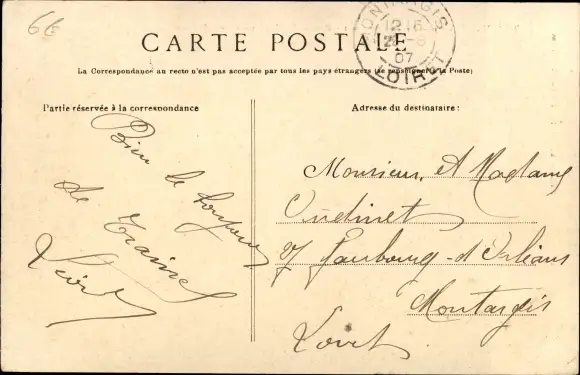 6E
CARTE POSTALE
La Correspondance au recto n'est pas acceptée par tous les pays étrangers (se renseigner à la Poste)
MONTARGIS
12 15
LOIRET
07
Partie réservée à la correspondance
Adresse du destinataire :
Bien le bonjour
de
Monsieur, et Madame
Oudinet
7 Faubourg-d'Orléans
Montargis
Loiret